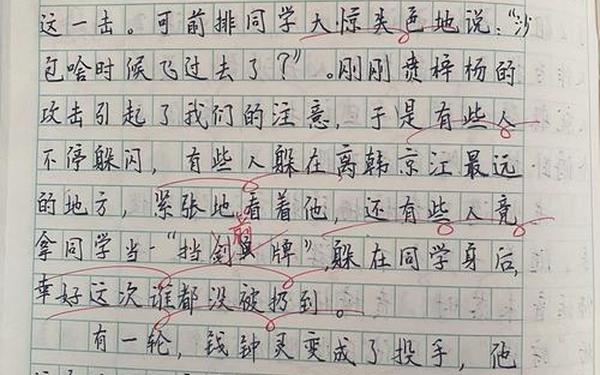 这一击。可前排同学大惊失色地说：“沙
包啥时候飞过去了？”。刚刚贲梓杨的
攻击引起了我们的注意，于是有些人
不停躲闪，有些人躲在离韩京江最远
的地方，紧张地看着他，还有些人竟
拿同学当“挡箭牌”，躲在同学身后，
幸好这次谁都没被扔到。
有一轮，钱钟灵变成了投手，他